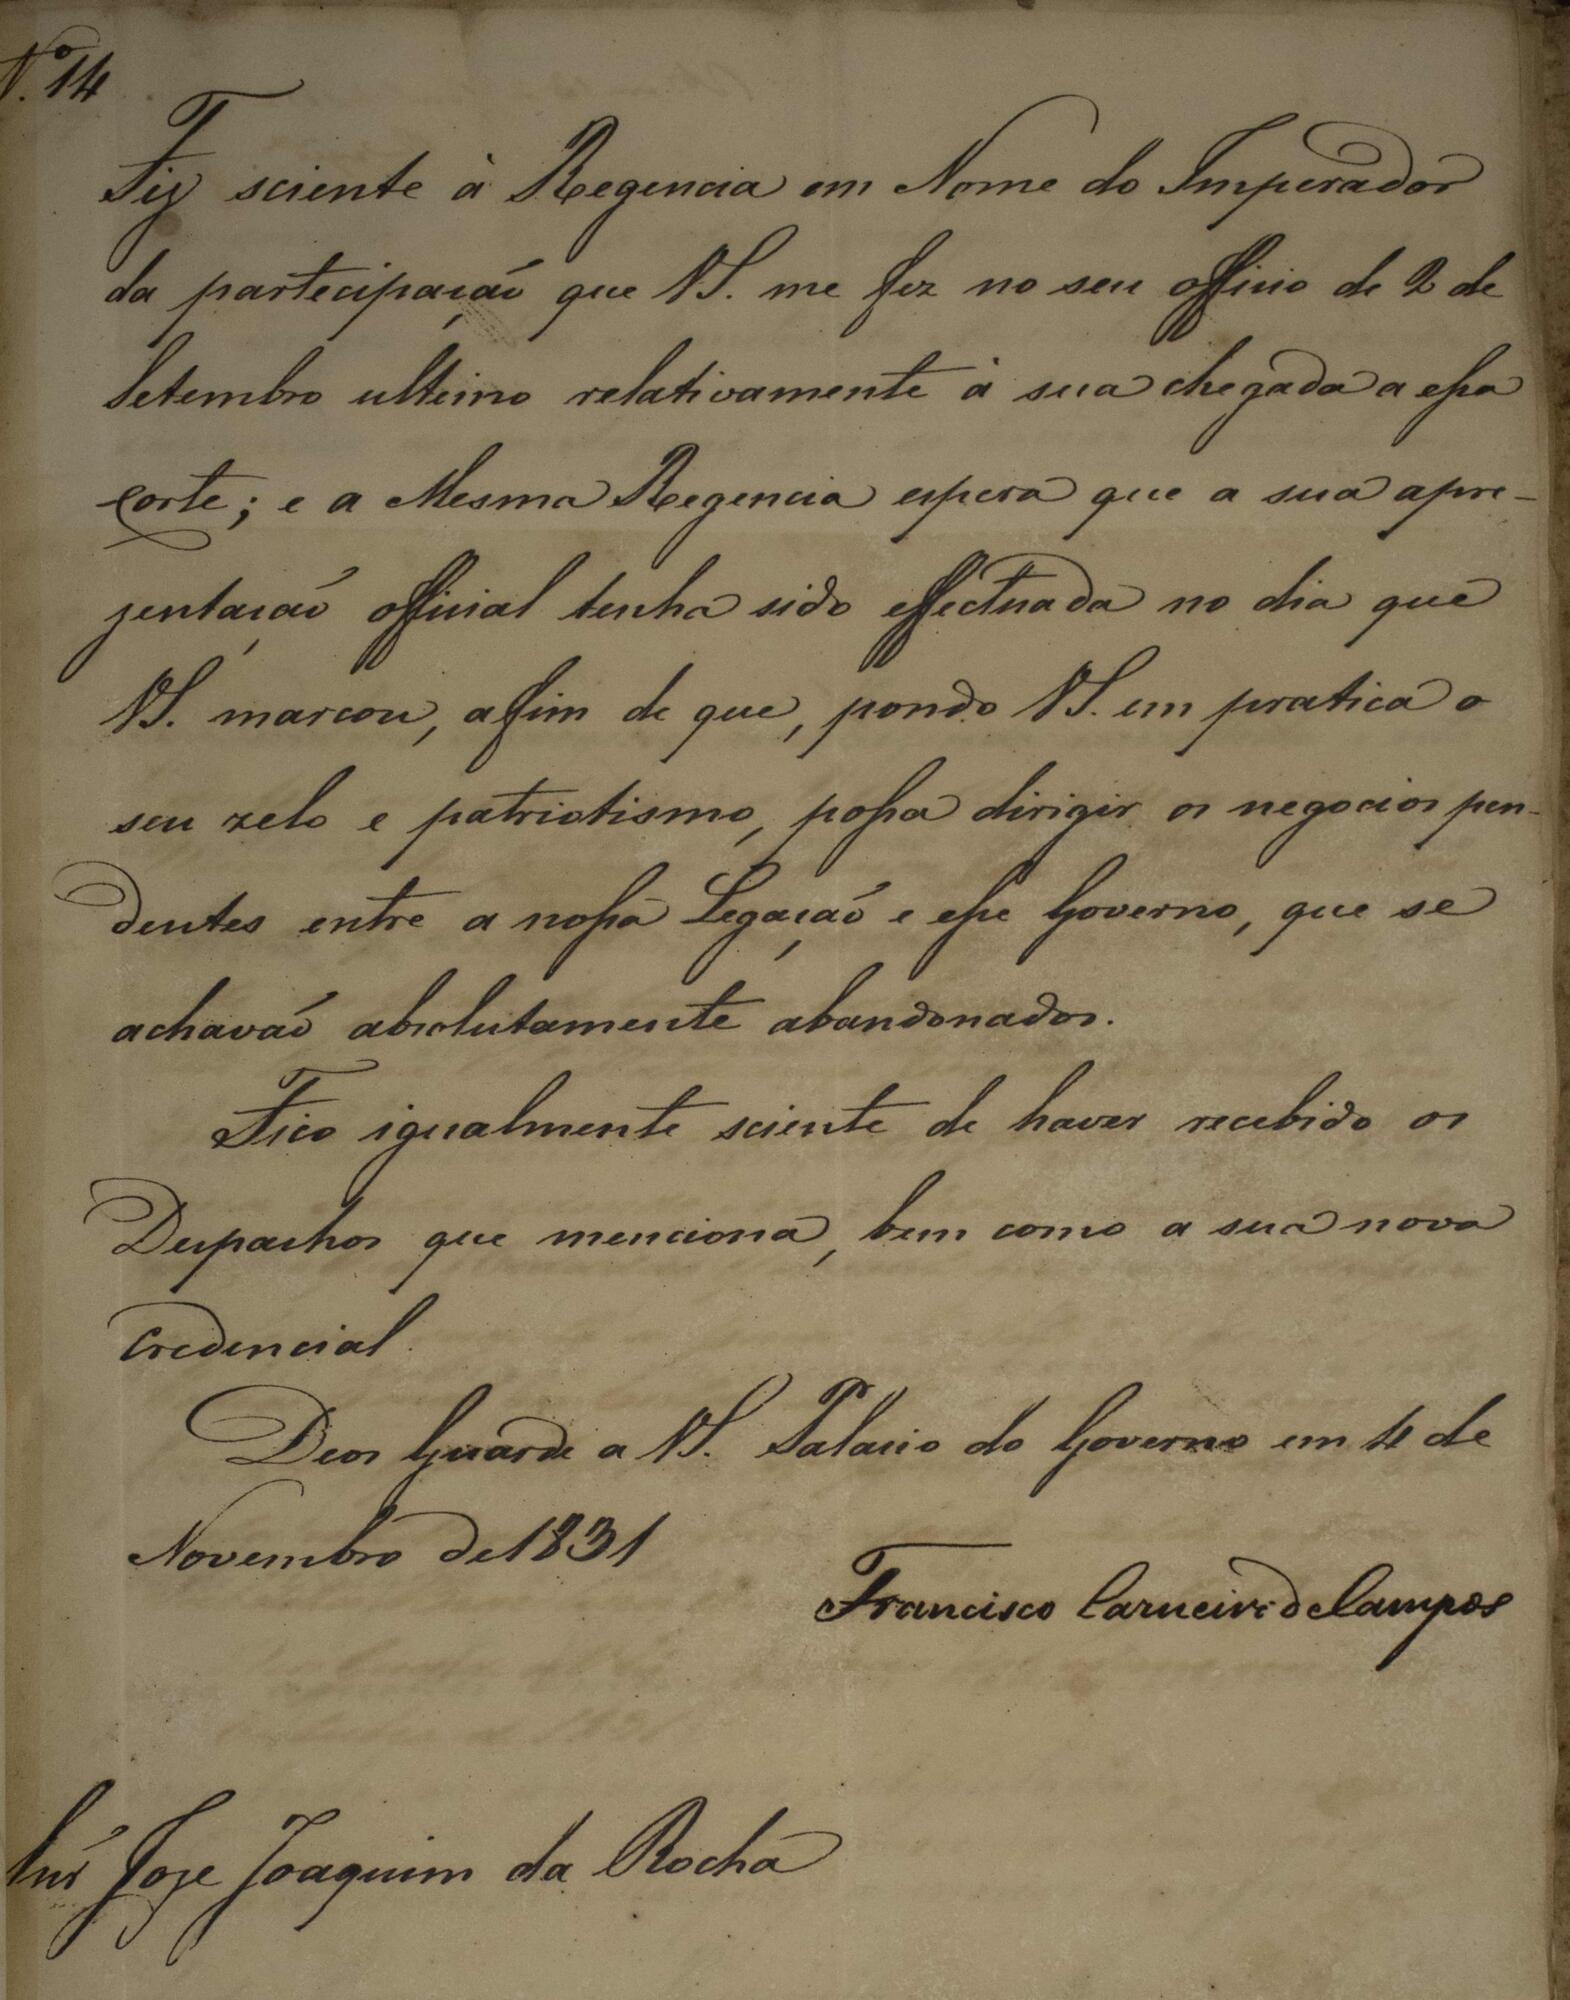 N.º 14
Fiz sciente à Regencia em Nome do Imperador
da partecipação que V S. me fez no seu officio de 2 de
Setembro ultimo relativamente à sua chegada a essa
Corte; e a Mesma Regencia espera que a sua apre-
zentação official tenha sido effectuada no dia que
V S. marcou, afim de que, pondo V S. em pratica o
seu zelo e patriotismo, possa dirigir os negocios pen-
dentes entre a nossa Legação e esse Governo, que se
achavaõ absolutamente abandonados.
Fico igualmente sciente de haver recebido os
Despachos que menciona, bem como a sua nova
Credencial.
Deos Guarde a V S. Palacio do Governo em 4 de
Novembro de 1831
Francisco Carneiro de Campos
Snr Joze Joaquim da Rocha